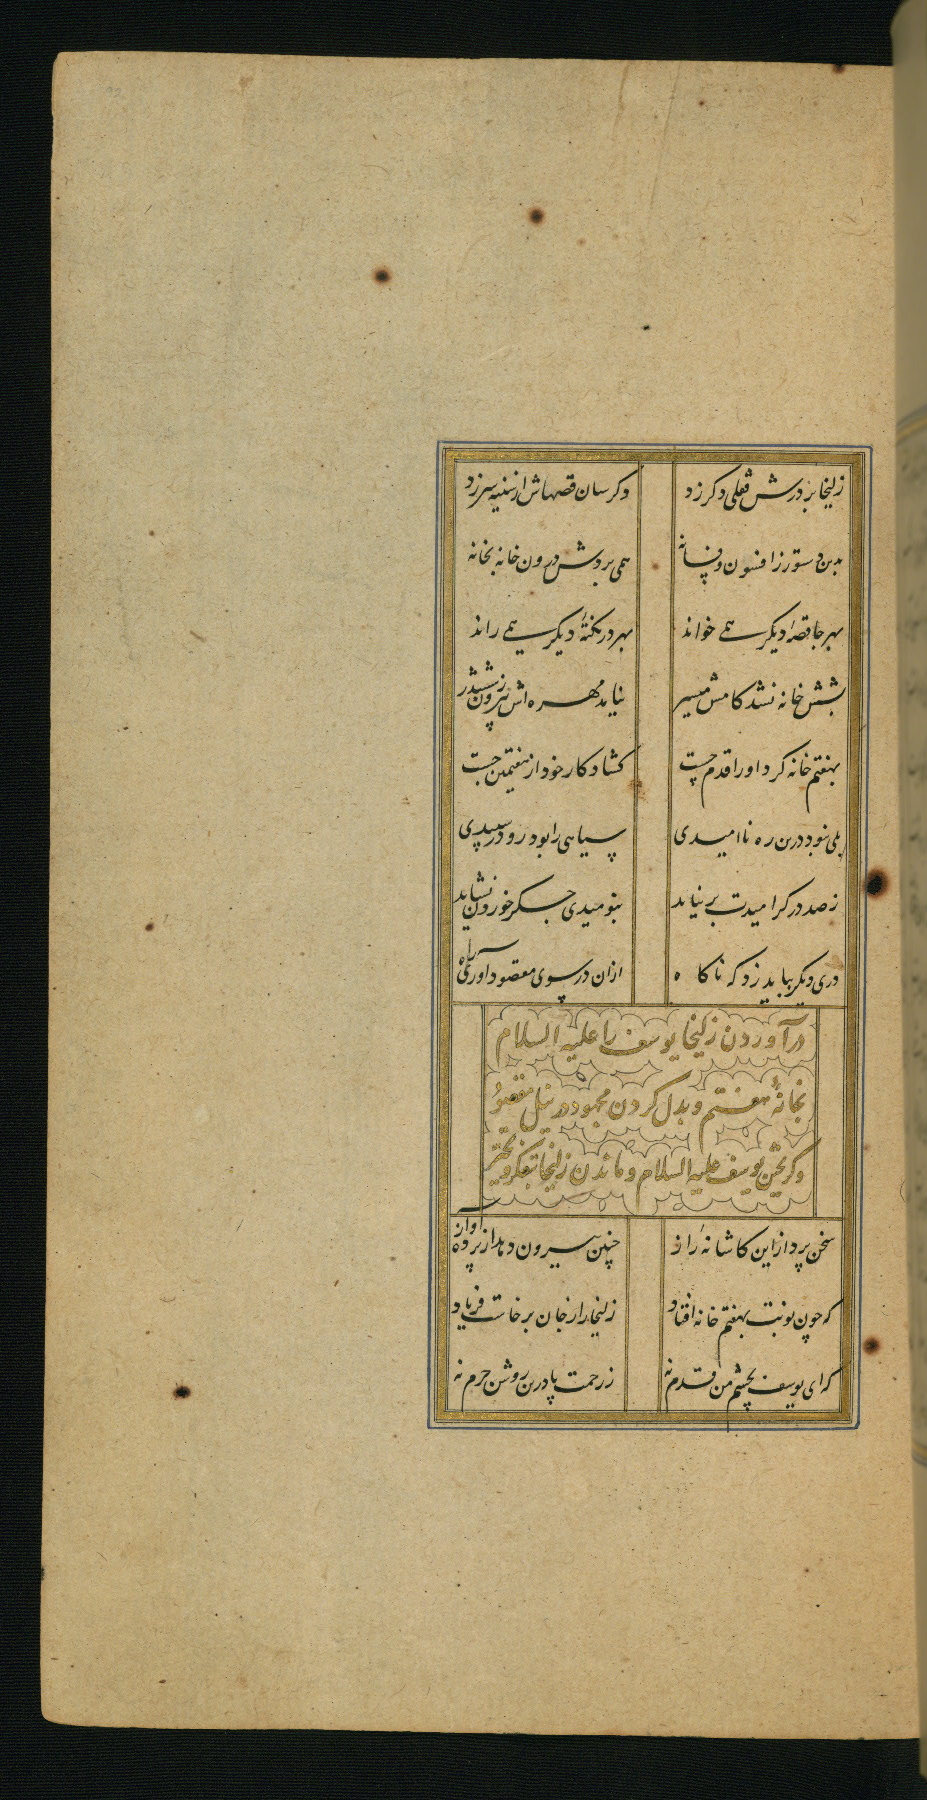 زلیخا بر درش قفلی دکر زد دکرسان قصهاش از سینه سر زد
بدین دستور ز افسون و فسانه همی بردش درون خانه بخانه
بهر جا قصهٔ دیکر همی خواند بهر در نکتهٔ دیکر همی راند
بشش خانه نشد کامش میسر نیامد مهره اش بیرون ز ششدر
بهفتم خانه کرد او را قدم چست کشاد کار خود از هفتمین جست
بلی نبود درین ره ناامیدی سیاهی را بود رو در سپیدی
ز صد در کر امیدت بر نیاید بنومیدی جکر خوردن نشاید
دری دیکر بباید زد که ناکاه ازان در سوی مقصود آوری راه
در آوردن زلیخا یوسف را علیه السلام
بخانهٔ هفتم و بذل کردن مجهود در نیل مقصود
و کریختن یوسف علیه السلام و ماندن زلیخا بتفکر و تحیر
سخن پرداز این کاشانهٔ راز چنین بیرون دهد از پرده آواز
که چون نوبت بهفتم خانه افتاد زلیخا را ز جان برخاست فریاد
که ای یوسف بچشم من قدم نه ز رحمت پا درین روشن حرم نه